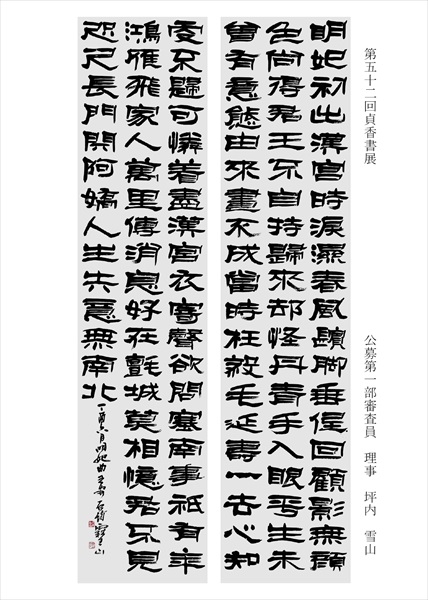 第五十二回貞香書展
公募第一部審査員　理事　坪内　雪山
明妃初出漢宮時淚濕春風鬢脚垂低回顧影無顔
色尚得君王不自持歸來却怪丹青手入眼平生未
曾有意態由來畫不成當時枉殺毛延壽一去心知
更不歸可憐着盡漢宮衣寄聲欲問塞南事祇有年
鴻雁飛家人萬里傳消息好在氈城莫相憶君不見
咫尺長門閉阿嬌人生失意無南北
丁酉六月明妃曲王安石詩雪山